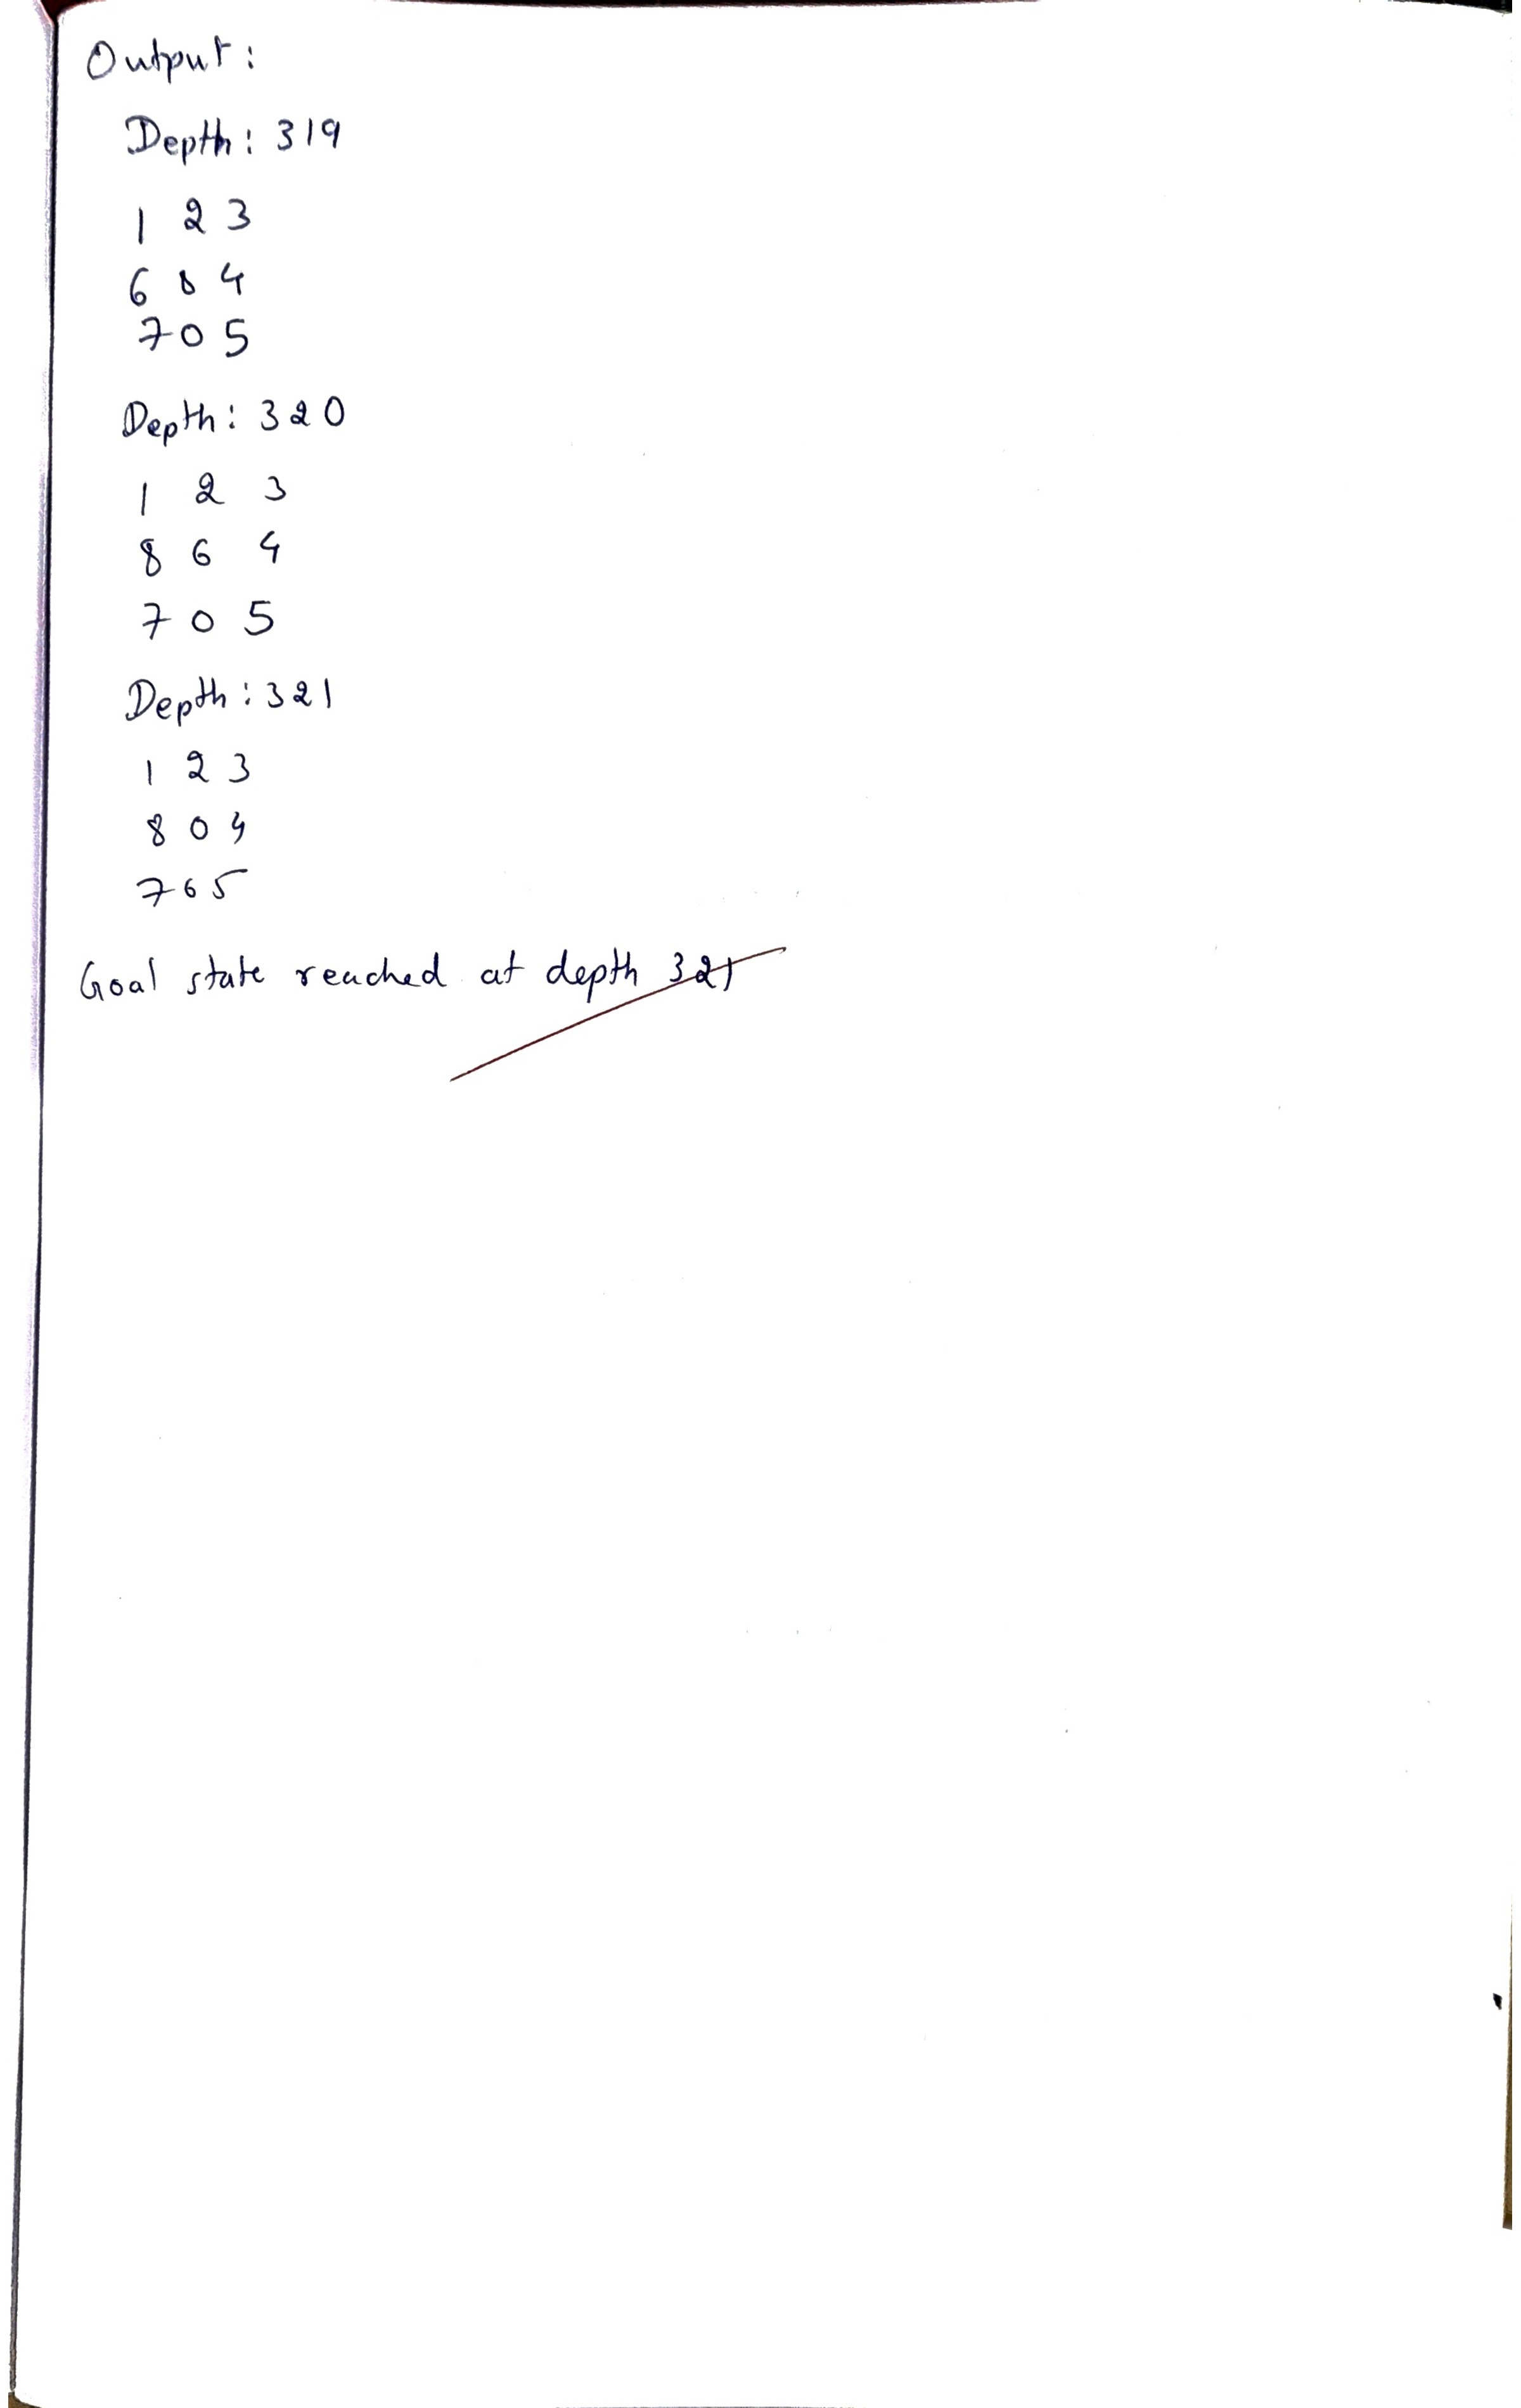 Output:
Depth: 319
1 2 3
6 8 4
7 0 5
Depth: 320
1 2 3
8 6 4
7 0 5
Depth: 321
1 2 3
8 0 4
7 6 5
Goal state reached at depth 321